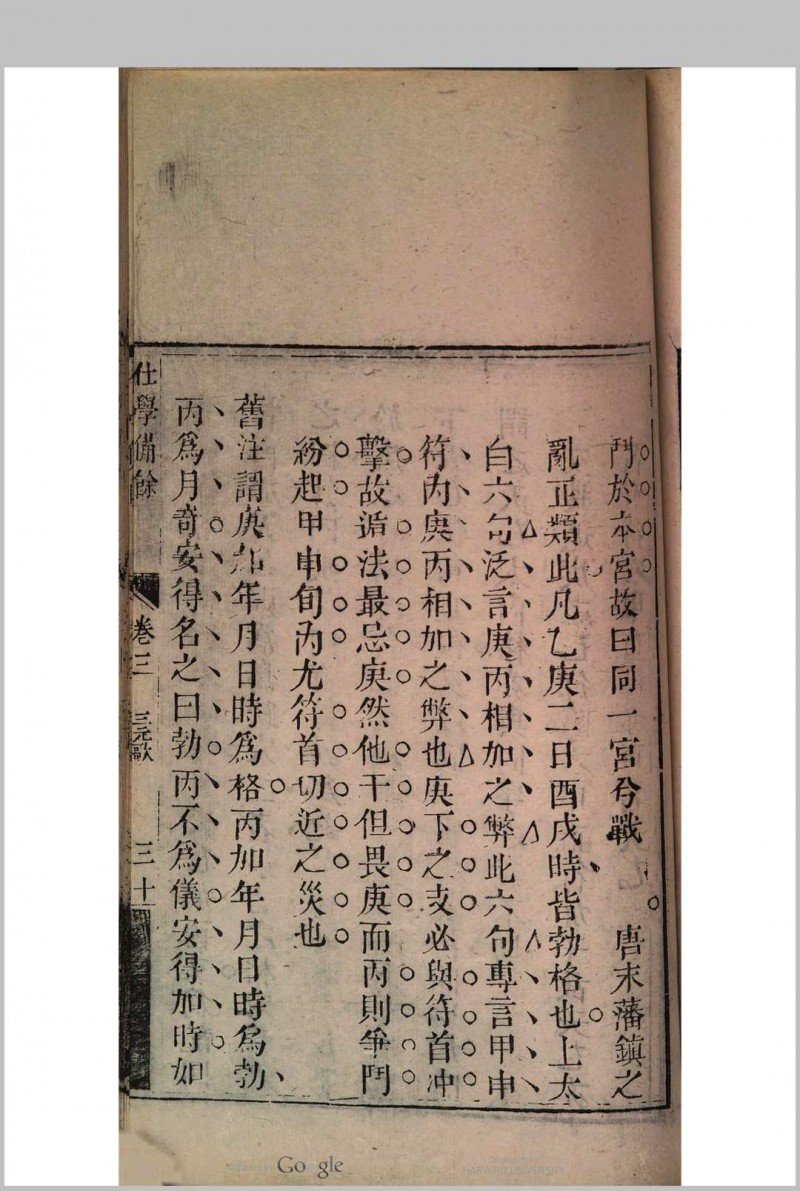 鬥於本宮故曰同一宮兮戰　唐末藩鎮之
亂正類此凡乙庚二日酉戌時皆勃格也上太
白六句泛言庚丙相加之弊此六句專言甲申
符內庚丙相加之弊也庚下之支必與符首冲
擊故遁法最忌庚然他干但畏庚而丙則爭鬥
紛起甲申旬內尤符首切近之災也
舊注謂庚加年月日時爲格丙加年月日時爲勃
丙爲月奇安得名之曰勃丙不爲儀安得加時如
仕學備餘 卷三 三元歌 三十
Google
HARVARD UNIVERSITY